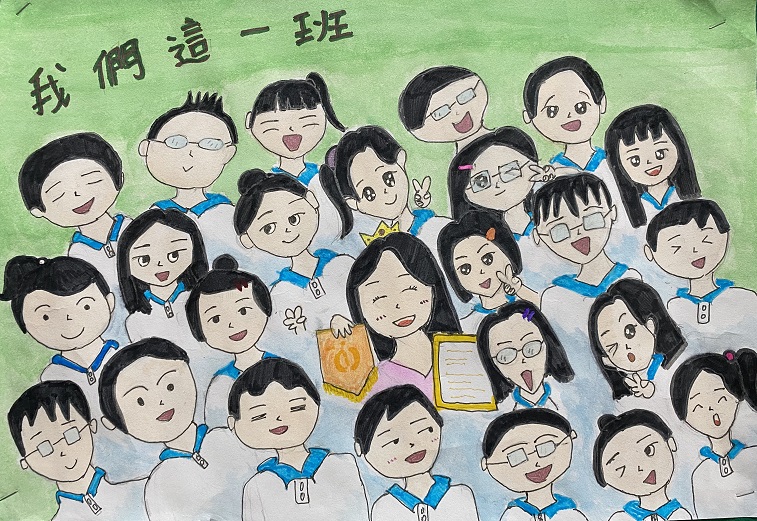 我們這一班